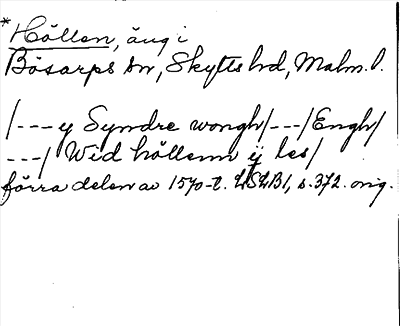 *Hållen, äng i
Bösarps sn, Skytts hd, Malm. l.
/---y Syndre wongh/---/Engh/
---/ Wid hållenn ÿ les/
förra delen av 1570-t. LSLB1, s. 372. orig.